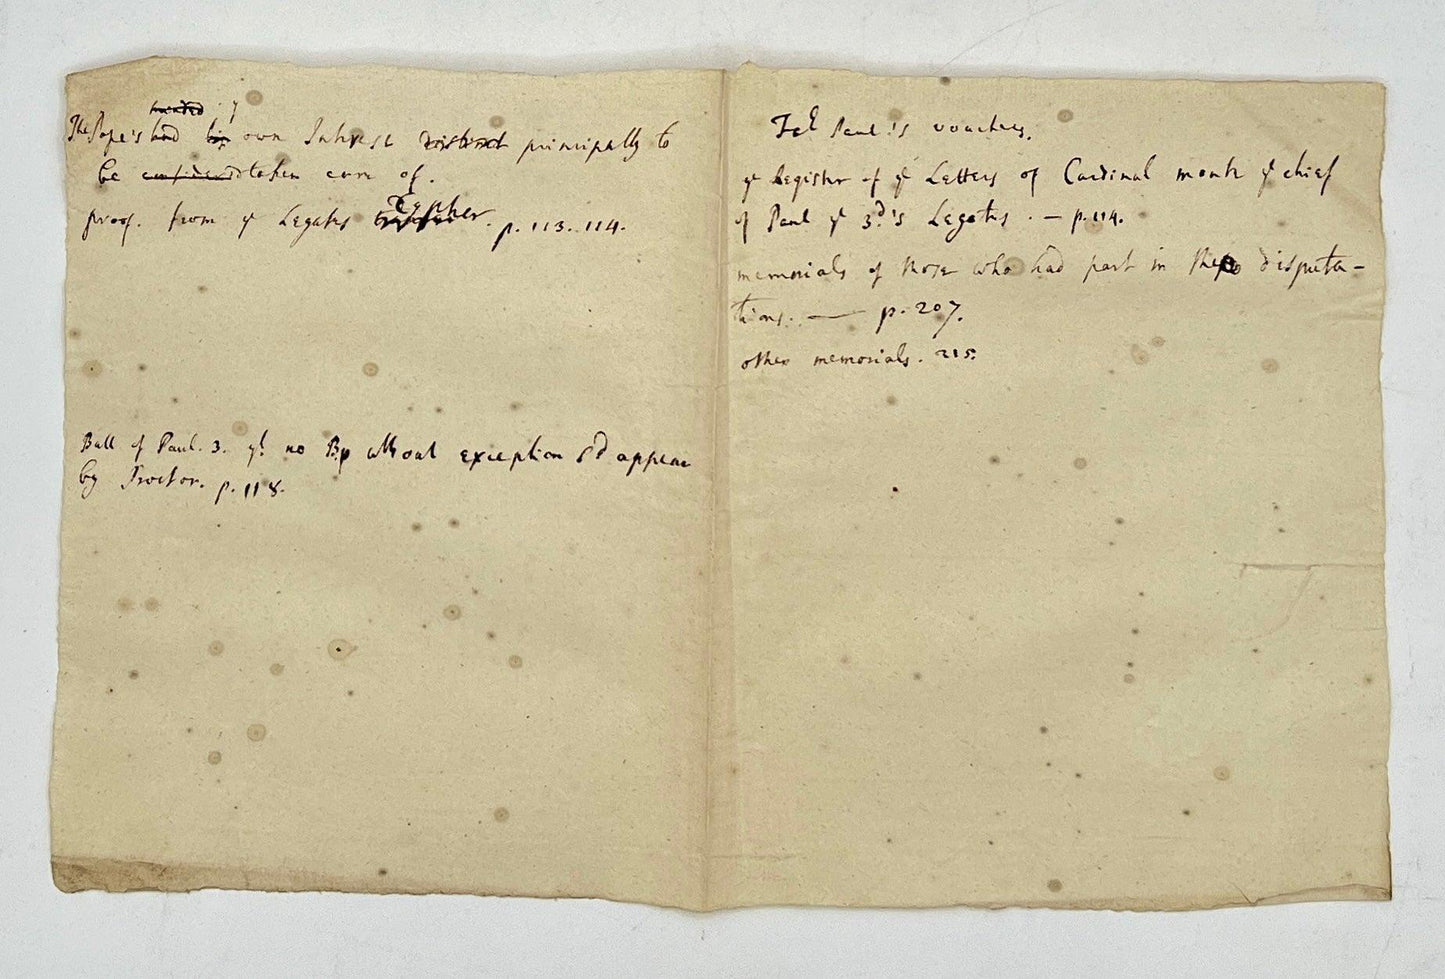 The Pope's had his own Interest distinct principally to
be considered taken care of.
proof. from yͤ Legates Cypher. p. 113. 114.
Bull of Paul. 3. yͭ no Bp without exception sᵈ appear
by Proctor. p. 118.
Paul's vouchers.
yͤ Register of yͤ Letters of Cardinal monte yͤ chief
of Paul yͤ 3ᵈ's Legates. — p. 114.
memorials of those who had part in disputa-
tions. — p. 207.
other memorials. 215.